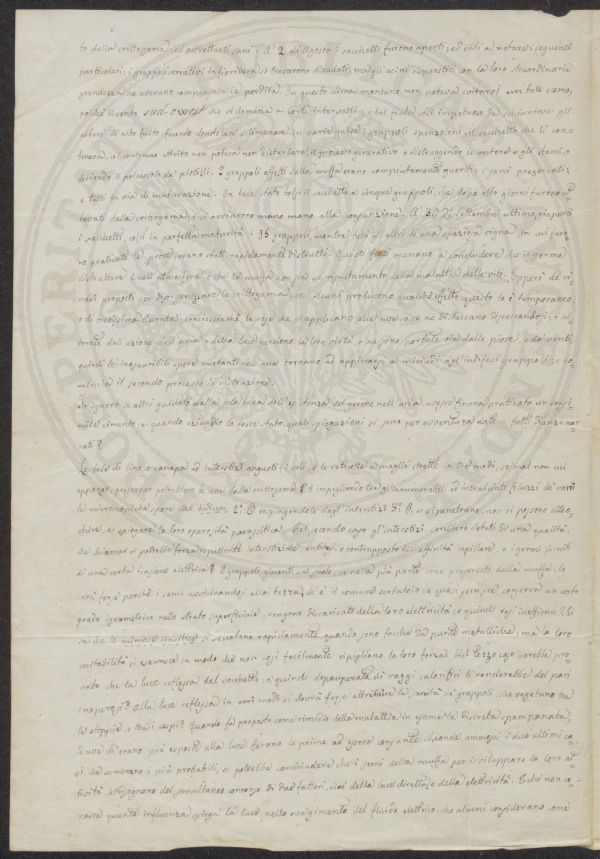 to dalla crittogama, ed altrettanti sani. A' 2 di Agosto i sacchetti furono aperti; ed ebbi a notare i seguenti
particolari: i grappoli serrativi in fioritura si trovarono diradati, ma gli acini superstiti con la loro straordinaria
grandezza ne avevano compensata la perdita. In questo clima montano non poteva evitarsi un tale scemo,
poiché il vento sud-owest che vi domina a corti intervalli, e tal fiata così impetuoso da schiantare gli
alberi di alto fusto, facendo dondolare e dimenare in varie guise i grappoli spenzoloni, il sacchetto che li con=
teneva, al continuo attrito non poteva non disturbare il processo generativo, o distruggendo le antere e gli stami, o
il polviscolo da' pistilli. I grappoli affetti dalla muffa erano compiutamente guariti; i sani preservati;
e tutti in via di maturazione. In tale stato tolsi il sacchetto a cinque grappoli, che dopo otto giorni furono at=
terrati dalla crittogama, e si avviarono mano mano alla consunzione. A' 30 di settembre ultimo, riaperti
i sacchetti, colsi in perfetta maturità i 95 grappoli, mentre tutti gli altri di una spaziosa vigna, in cui furo=
no praticate le prove erano stati rapidamente distrutti. Questi fatti menano a conchiudere che il germe
distruttore è nell'atmosfera, e che la muffa non sia un risultamento della malattia delle viti. Epperò de' ri=
medî proposti per disorganizzare la crittogama, se alcuni producono qualche effetto, questo lo è temporaneo
e di brevissima durata, conciossiaché le cose che si applicano alle uve, o se ne distaccano disseccandosi, o al=
terate dall'azione dell'aria e della luce perdono la loro virtù, o vengono portate via dalle piove, e da' venti,
quindi le inesauribili spore nuotanti nell'aria tornano ad appiccarsi a miriadi agl'indifesi grappoli, e co=
mincia il secondo processo di distruzione.
Io ignoro se altri guidato dalla sola idea dell'esistenza del germe nell'aria avesse finora praticato un consi=
mile cimento, e quando eziandio lo fosse stato, quali spiegazioni si sono per avventura date a' fatti dianzi nar=
rati?
Le tele di lino o canapa ad interstizi angusti, i veli, e le reticelle a maglie strette in tre modi, se mal non mi
appongo, preservar potrebbero le uve dalla crittogama 1.° O impigliando tra gl'innumerabili ed intralciati filuzzi de' vani
le microscopiche spore dell'oidium. 2.° O respingendole dagl'interstizi. 3.° O, se vi penetrano, non vi possono alle=
chire, e spiegare la loro operosità parassitica. Nel secondo caso gl'interstizi sarebbero dotati di una qualità,
che chiamar si potrebbe forza repellente interstiziale, antitesi, e contrapposto dell'affinità capillare, e i germi forniti
di una certa tensione elettrica? I grappoli giacenti sul suolo, se nella più parte sono preservati dalla muffa, lo
sarà forse perché i semi avvicinandosi alla terra, ch'è il comune serbatoio, e quasi sempre conserva un certo
grado igrometrico nello strato superficiale, vengono discaricati della loro elettricità, e quindi resi inefficaci? Si
sa che le mimose sensitive si serrano rapidamente quando sono tocche da punte metalliche, ma la loro
eccitabilità si esaurisce in modo che non così facilmente ripigliano la loro forza. Nel terzo caso sarebbe pro=
vato che la luce riflessa dal sacchetto, e quindi depauperata di raggi calorifici li renderebbe del pari
inoperosi? Alla luce riflessa in vari modi si dovrà forse attribuire la sanità de' grappoli, che vegetano tra
le stoppie, o tra i cespi? Quando fu proposto come rimedio della malattia in esame la discreta spampanata,
le uve ch'erano più esposte alla luce furono le prime ad essere consunte. Laonde, ammessi i due ultimi ca=
si, che sembrano i più probabili, si potrebbe conchiudere che i semi della muffa per isviluppare la loro at=
tività abbisognano del simultaneo concorso di due fattori, cioè della luce diretta, e della elettricità. E chi non co=
nosce quanta influenza spiega la luce nello svolgimento del fluido elettrico, che alcuni considerano come